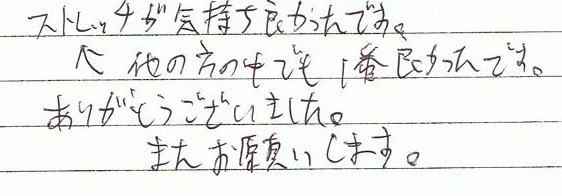 ストレッチが気持ち良かったです。
↑ 他の方の中でも1番良かったです。
ありがとうございました。
またお願いします。